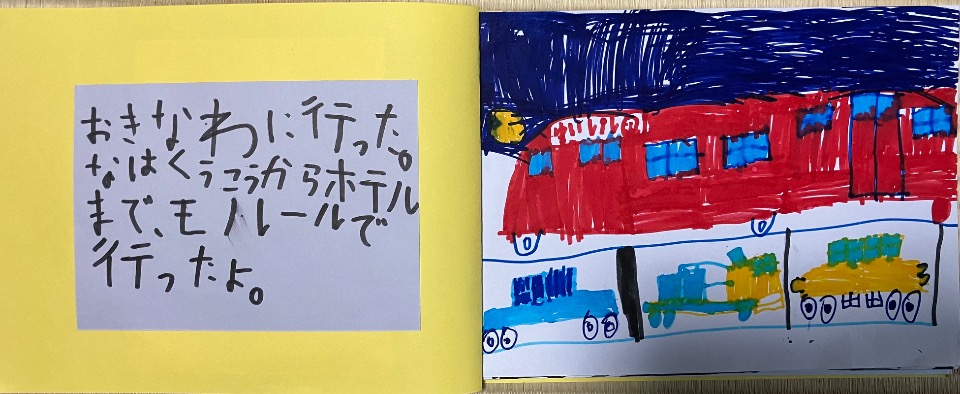 おきなわに行った。
なはくうこうからホテル
まで、モノレールで
行ったよ。